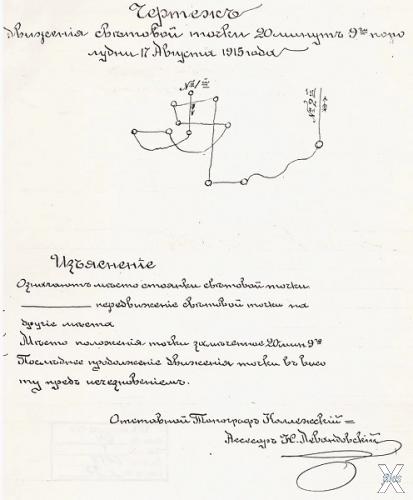 Чертежъ
движенія свѣтовой точки 20 минутъ 9го попо
лудни 17 Августа 1915 года
№ 1/III
№ 2/III
Изъясненіе
Означаютъ мѣсто стоянки свѣтовой точки
передвиженіе свѣтовой точки на
другіе мѣста
Мѣсто положенія точки замѣченное 20 мин 9го
Послѣднее продолженіе движенія точки въ висо
ту предъ исчезновеніемъ.
Отставной Топографъ Коллежскій =
Ассесоръ К. Левандовскій
X